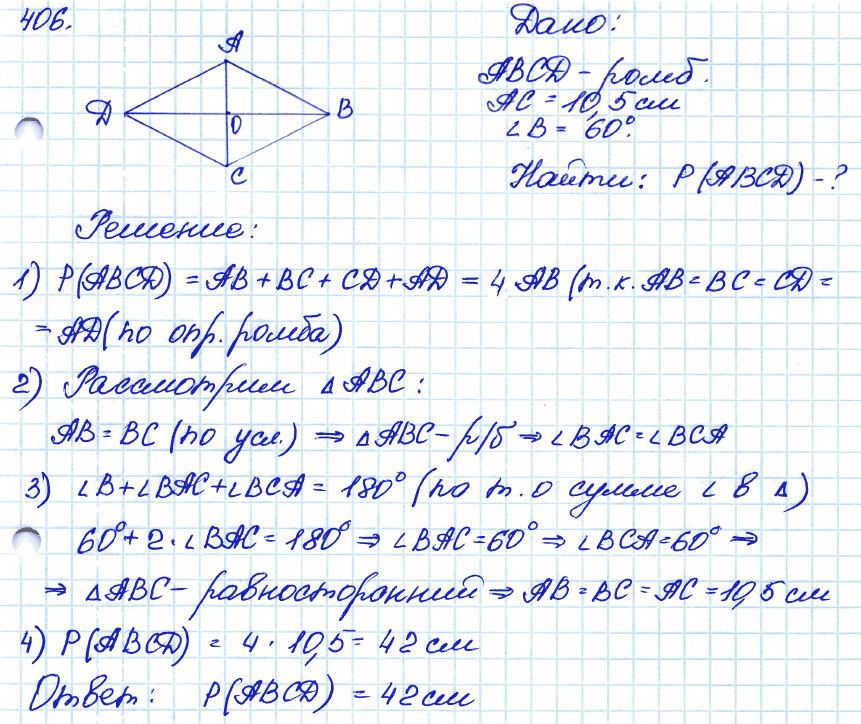 406.
A
D
B
O
C
Дано:
ABCD – ромб.
AC = 10,5 см
∠B = 60°.
Найти: P(ABCD) – ?
Решение:
1) P(ABCD) = AB + BC + CD + AD = 4 AB (т.к. AB = BC = CD =
= AD (по опр. ромба)
2) Рассмотрим △ABC:
AB = BC (по усл.) ⇒ △ABC – р/б ⇒ ∠BAC = ∠BCA
3) ∠B + ∠BAC + ∠BCA = 180° (по т. о сумме ∠ в △)
60° + 2 · ∠BAC = 180° ⇒ ∠BAC = 60° ⇒ ∠BCA = 60° ⇒
⇒ △ABC – равносторонний ⇒ AB = BC = AC = 10,5 см
4) P(ABCD) = 4 · 10,5 = 42 см
Ответ: P(ABCD) = 42 см